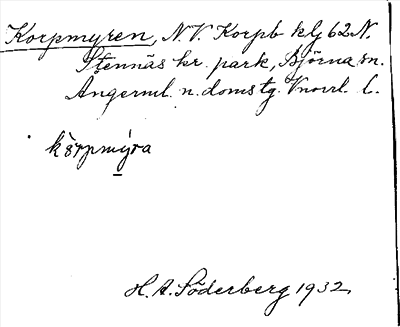 Korpmyren, N.V. Korpb klg 62 N.
Stennäs kr. park, Björna sn.
Angerml. n. doms tg. Vnorrl. l.
kòrpmýra
H. A. Söderberg 1932